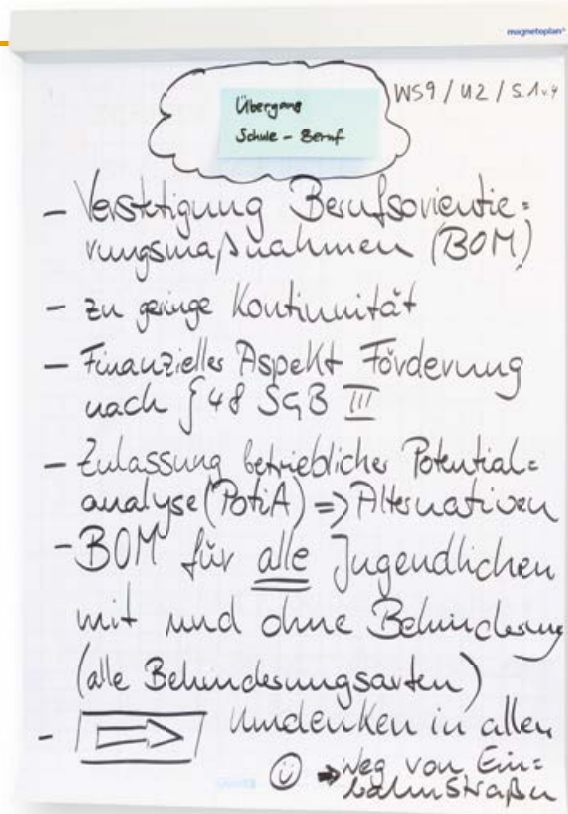 magnetoplan®
WS9 / U2 / S.1 v. 4
Übergang
Schule - Beruf
- Verstetigung Berufsorientie=
rungsmaßnahmen (BOM)
- zu geringe Kontinuität
- Finanzieller Aspekt Förderung
nach § 48 SGB III
- Zulassung betrieblicher Potential=
analyse (PotiA) => Alternativen
- BOM für alle Jugendlichen
mit und ohne Behinderung
(alle Behinderungsarten)
- ⇒ Umdenken in allen
☺ → Weg von Ein=
bahnstraßen